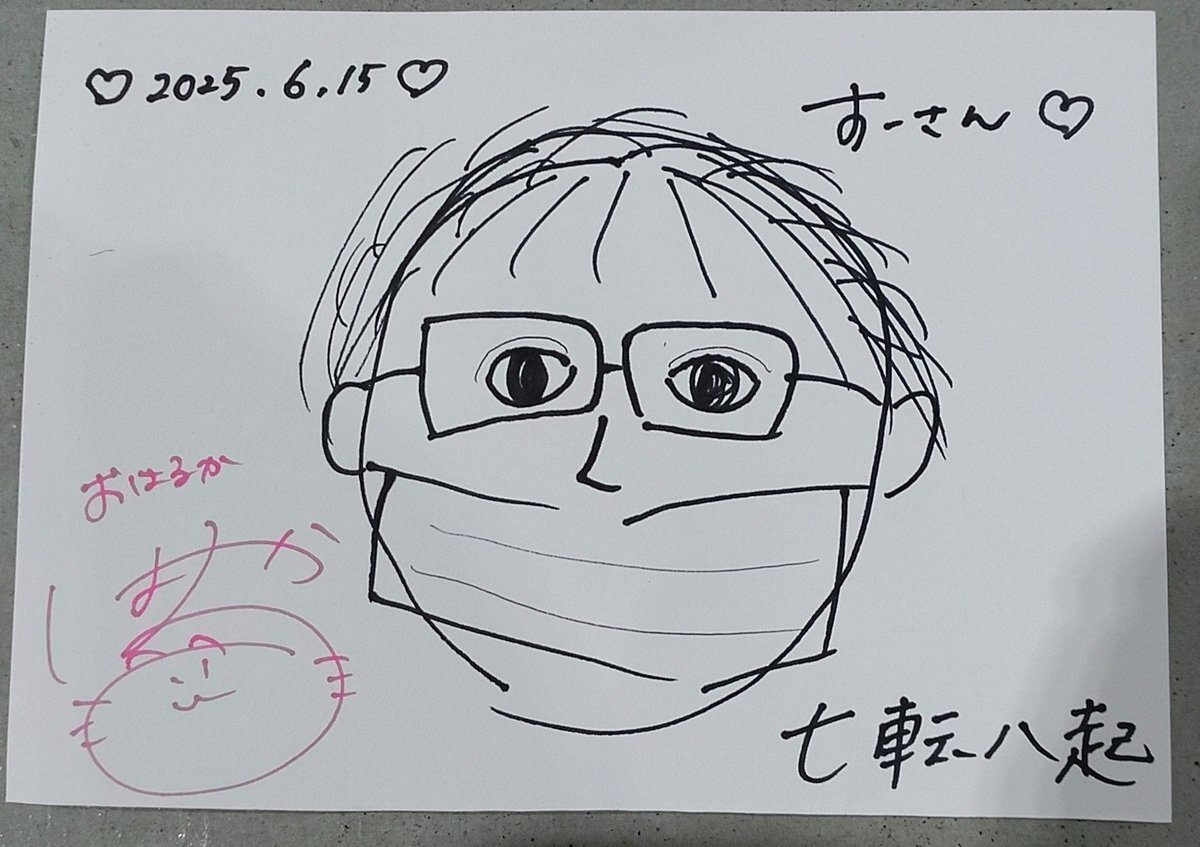 ♡2025.6.15♡
すーさん♡
おはるか
七転八起